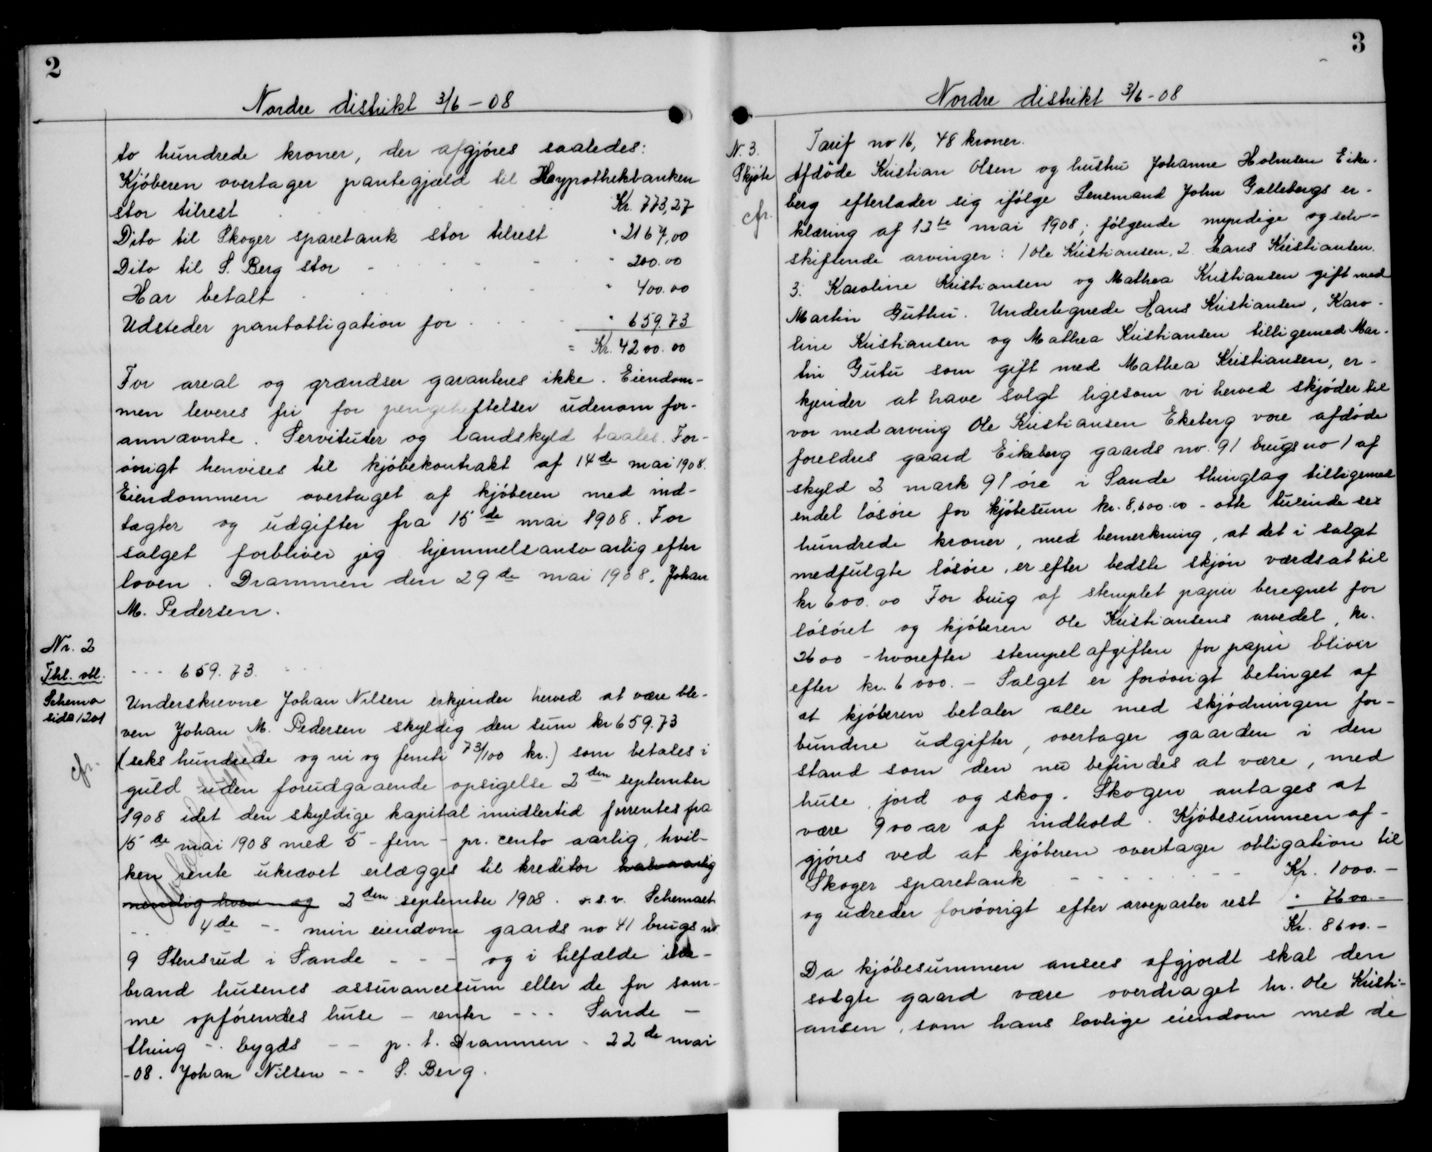 2
Nordre distrikt 3/6 - 08
to hundrede kroner, der afgjøres saaledes:
Kjøberen overtager pantegjæld til Hoypothekbanken
stor tilrest Kr. 773,27
Dito til Skoger sparebank stor tilrest " 2167,00
Dito til S. Berg stor - - - - - " 200.00
Har betalt " 400.00
Udsteder pantobligation for " 659.73
= Kr. 4200.00
For areal og grændser garanteres ikke. Eiendom-
men leveres fri for pengeheftelser udenom for-
annævnte. Servituter og landskyld taales. For-
øvrigt henvises til kjøbekontrakt af 14de mai 1908.
Eiendommen overtaget af kjøberen med ind-
tægter og udgifter fra 15de mai 1908. For
salget forbliver jeg hjemmelsansvarlig efter
loven. Drammen den 29de mai 1908. Johan
M. Pedersen.
Nr. 2
Thl. obl.
Schema
side 1201
cfr.
- - - 659.73. - - -
Underskrevne Johan Nilsen erkjender herved at være ble-
ven Johan M. Pedersen skyldig den sum kr 659.73
(seks hundrede og ni og femti 73/100 kr.) som betales i
guld uden forudgaaende opsigelse 2den september
1908 idet den skyldige kapital imidlertid forrentes fra
15de mai 1908 med 5 - fem - pr. cento aarlig, hvil-
ken rente ukrævet erlægges til kreditor halvaarlig
nemlig hver og 2den september 1908. o.s.v. Schemaet
- - 4de - - min eiendom gaards no 41 brugs no
9 Stensrud i Sande - - - og i tilfælde ilde-
brand husenes assurancesum eller de for sam-
me opførendes huse - renter - - - Sande -
thing - - bygds - - p. t. Drammen - 22de mai
-08. Johan Nilsen - - S. Berg.
3
Nordre distrikt 3/6 - 08
N. 3.
Skjøte
cfr.
Tarif no 16, 48 kroner.
Afdøde Kristian Olsen og hustru Johanne Holmsen Eike-
berg efterlader sig ifølge Lensmand John Gallebergs er-
klæring af 12te mai 1908; følgende myndige og selv-
skiftende arvinger: 1 Ole Kristiansen, 2. Hans Kristiansen.
3. Karoline Kristiansen og Mathea Kristiansen gift med
Martin Guthu. Undertegnede Hans Kristiansen, Karo-
line Kristiansen og Mathea Kristiansen tilligemed Mar-
tin Gutu som gift med Mathea Kristiansen, er-
kjender at have solgt ligesom vi herved skjøder til
vor medarving Ole Kristiansen Ekeberg vore afdøde
foreldres gaard Eikeberg gaards no. 91 brugs no 1 af
skyld 2 mark 91 øre i Sande thinglag tilligemed
endel løsøre for kjøbesum kr. 8,600.00 - otte tusinde sex
hundrede kroner, med bemerkning, at det i salget
medfulgte løsøre, er efter bedste skjøn værdsat til
kr 600.00 For brug af stemplet papir beregnet for
løsøret og kjøberen Ole Kristiansens arvedel, kr.
2600 - hvorefter stempelafgiften for papir bliver
efter kr. 6000. - Salget er forøvrigt betinget af
at kjøberen betaler alle med skjødningen for-
bundne udgifter, overtager gaarden i den
stand som den nu befindes at være, med
huse jord og skog. Skogen antages at
være 900 ar af indhold. Kjøbesummen af-
gjøres ved at kjøberen overtager obligation til
Skoger sparebank - - - - - - Kr. 1000.-
og udreder forøvrigt efter arveparter rest " 7600.-
Kr. 8600.-
Da kjøbesummen ansees afgjordt skal den
solgte gaard være overdraget hr. Ole Kristi-
ansen, som hans lovlige eiendom med de